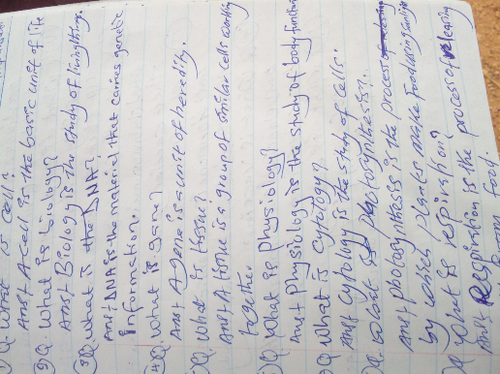 Q. What is cell?
Ans+ A cell is the basic unit of life
Q. What is biology?
Ans+ Biology is the study of living thing.
Q. What is the DNA?
Ans+ DNA is the material that carries genetic
information.
Q. What is gene?
Ans+ A gene is a unit of heredity.
Q. What is tissue?
Ans+ A tissue is a group of similar cells working
together
Q. What is Physiology?
Ans+ Physiology is the study of body function
Q. What is cytology?
Ans+ cytology is the study of cells.
Q. What is photosynthesis?
Ans+ photosynthesis is the process
by which plants make food using sunlight
Q. What is respiration?
Ans+ Respiration is the process of releasing
food.